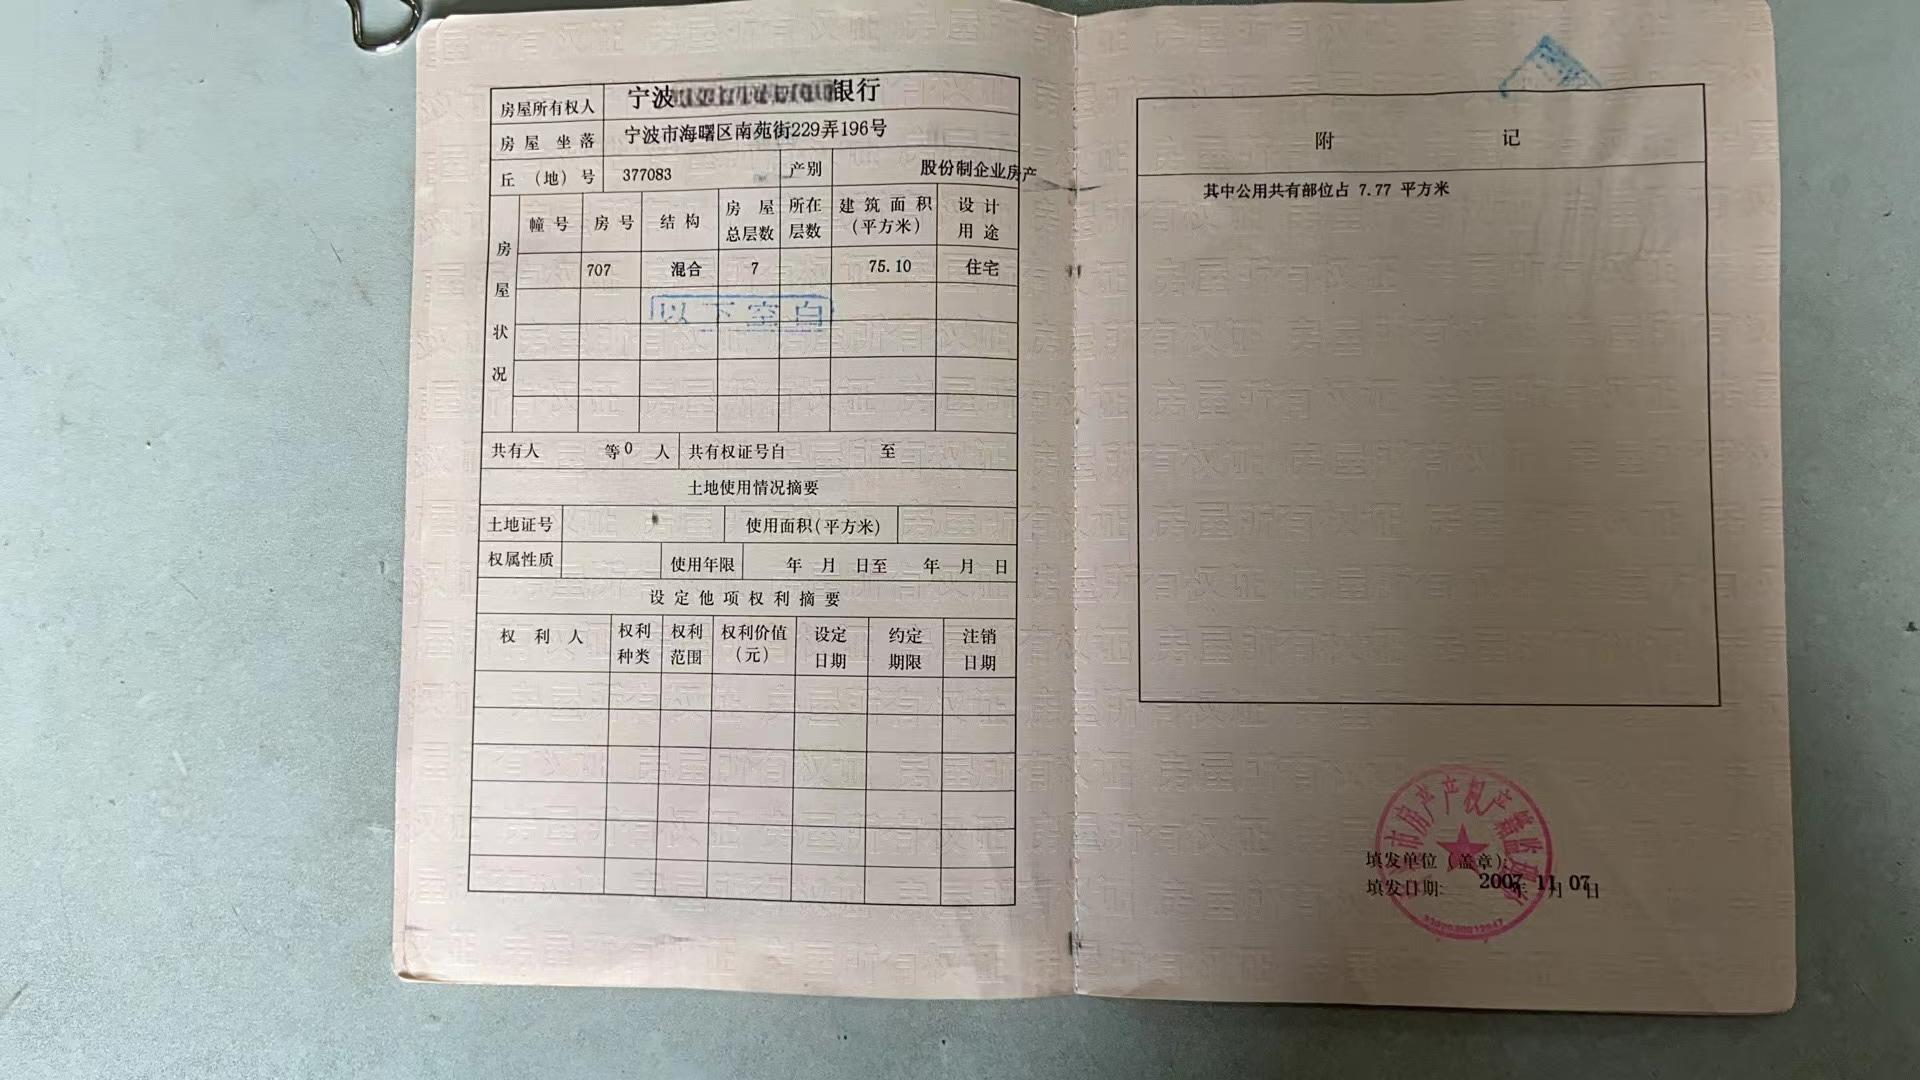 房屋所有权人 宁波 银行
房屋坐落 宁波市海曙区南苑街229弄196号
丘（地）号 377083 产别 股份制企业房产
房屋状况
幢号 房号 结构 房屋总层数 所在层数 建筑面积（平方米） 设计用途
707 混合 7 75.10 住宅
以下空白
共有人 等0人 共有权证号自 至
土地使用情况摘要
土地证号 使用面积(平方米)
权属性质 使用年限 年 月 日至 年 月 日
设定他项权利摘要
权利人 权利种类 权利范围 权利价值（元） 设定日期 约定期限 注销日期
附 记
其中公用共有部位占 7.77 平方米
市房产产权产籍监
填发单位（盖章）:
填发日期: 2007年 11月 07日